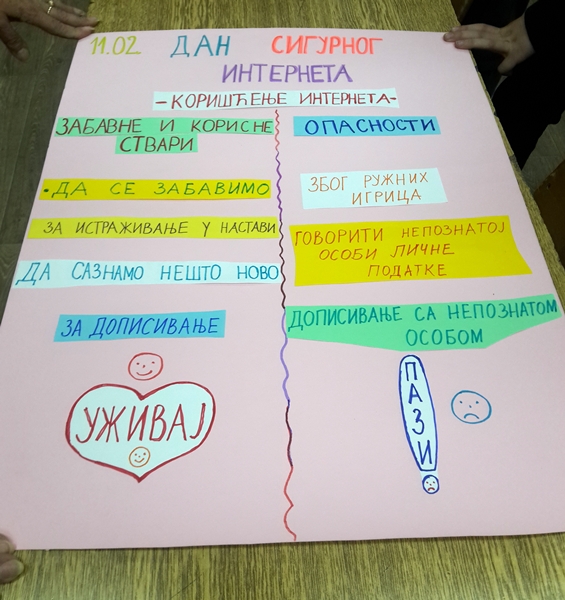 11.02 ДАН СИГУРНОГ
ИНТЕРНЕТА
-КОРИШЋЕЊЕ ИНТЕРНЕТА-
ЗАБАВНЕ И КОРИСНЕ
СТВАРИ
·ДА СЕ ЗАБАВИМО
ЗА ИСТРАЖИВАЊЕ У НАСТАВИ
ДА САЗНАМО НЕШТО НОВО
ЗА ДОПИСИВАЊЕ
УЖИВАЈ
ОПАСНОСТИ
ЗБОГ РУЖНИХ
ИГРИЦА
ГОВОРИТИ НЕПОЗНАТОЈ
ОСОБИ ЛИЧНЕ
ПОДАТКЕ
ДОПИСИВАЊЕ СА НЕПОЗНАТОМ
ОСОБОМ
ПАЗИ